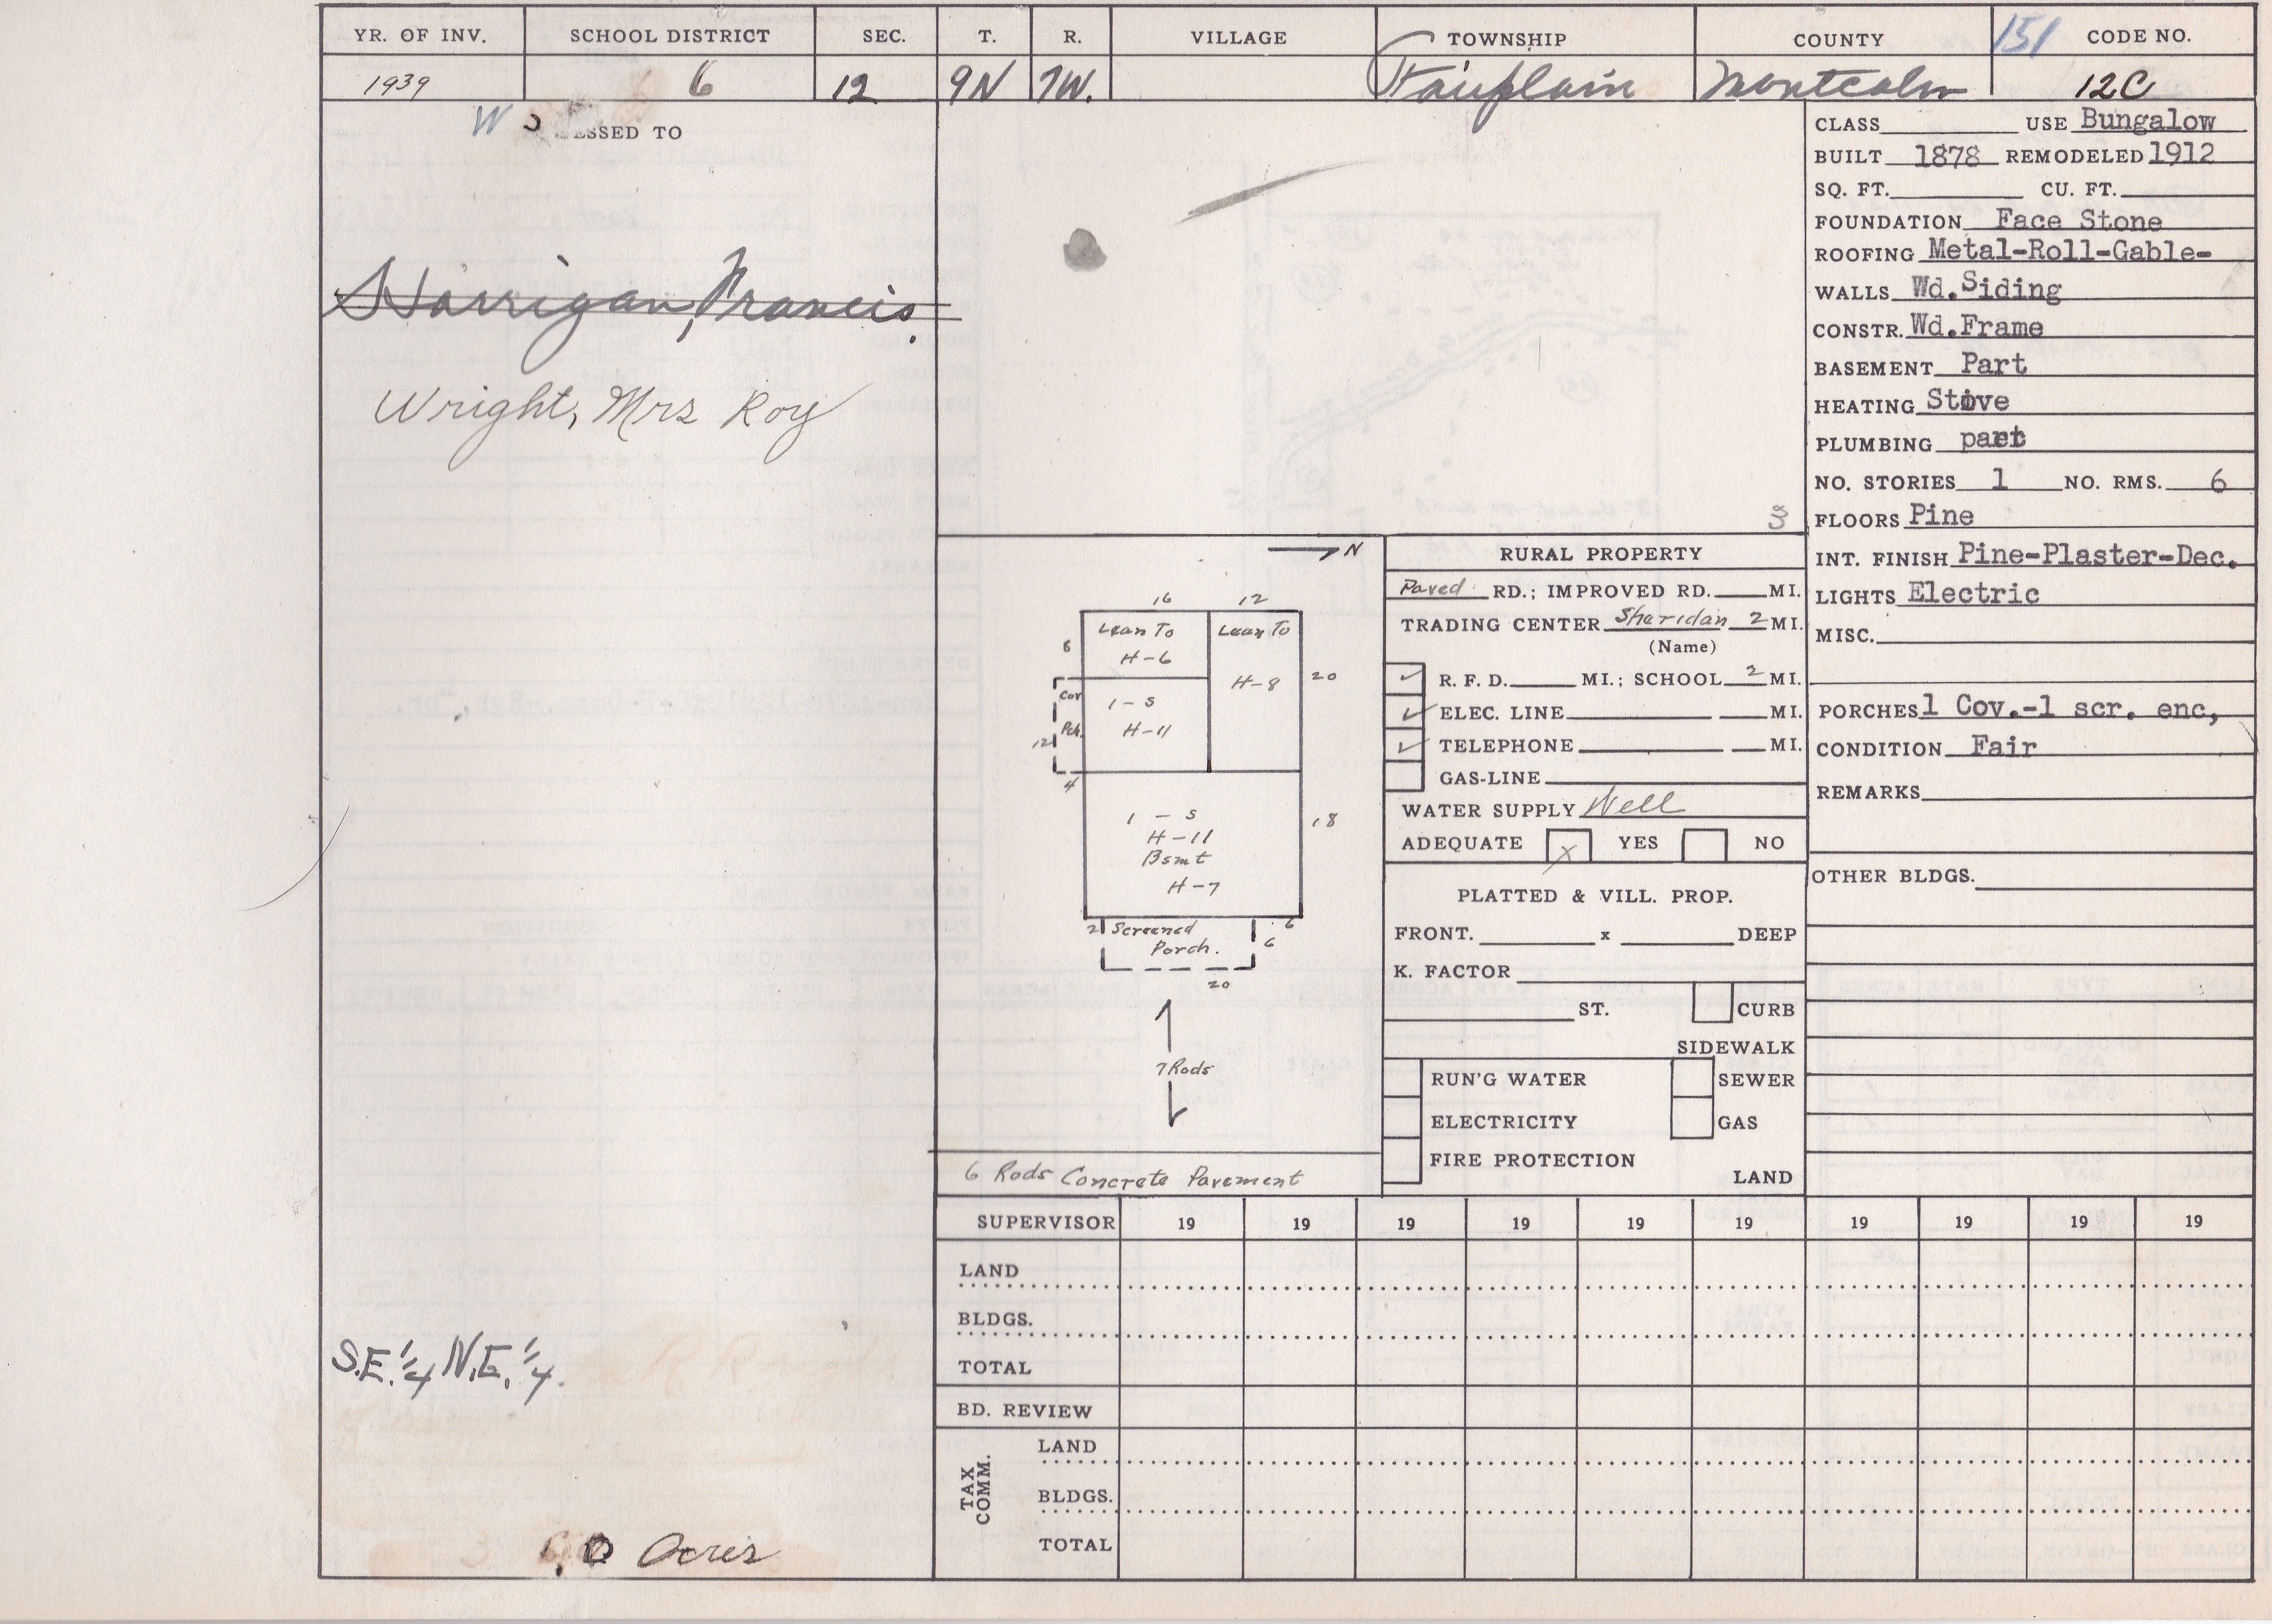 YR. OF INV. SCHOOL DISTRICT SEC. T. R. VILLAGE TOWNSHIP COUNTY 151 CODE NO.
1939 6 12 9N 7W. Fairplain Montcalm 12C
W ESSED TO
Harrigan, Francis.
Wright, Mrs Roy
S.E. 1/4 N.E. 1/4.
Acres
3
N
16 12
Lean To
H-6
Lean To
H-8
20
Cov
Pch.
12
4
1-S
H-11
1 - S
H-11
Bsmt
H-7
18
2 Screened
Porch.
6
6
20
7 Rods
6 Rods Concrete Pavement
RURAL PROPERTY
Paved RD.; IMPROVED RD. MI.
TRADING CENTER Sheridan 2 MI.
(Name)
R. F. D. MI.; SCHOOL 2 MI.
ELEC. LINE MI.
TELEPHONE MI.
GAS-LINE
WATER SUPPLY Well
ADEQUATE X YES NO
PLATTED & VILL. PROP.
FRONT. x DEEP
K. FACTOR
ST. CURB
SIDEWALK
RUN'G WATER SEWER
ELECTRICITY GAS
FIRE PROTECTION
LAND
CLASS USE Bungalow
BUILT 1878 REMODELED 1912
SQ. FT. CU. FT.
FOUNDATION Face Stone
ROOFING Metal-Roll-Gable-
WALLS Wd.Siding
CONSTR. Wd.Frame
BASEMENT Part
HEATING Stove
PLUMBING part
NO. STORIES 1 NO. RMS. 6
FLOORS Pine
INT. FINISH Pine-Plaster-Dec.
LIGHTS Electric
MISC.
PORCHES 1 Cov.-1 scr. enc,
CONDITION Fair
REMARKS
OTHER BLDGS.
SUPERVISOR 19 19 19 19 19 19 19 19 19 19
LAND
BLDGS.
TOTAL
BD. REVIEW
TAX COMM.
LAND
BLDGS.
TOTAL